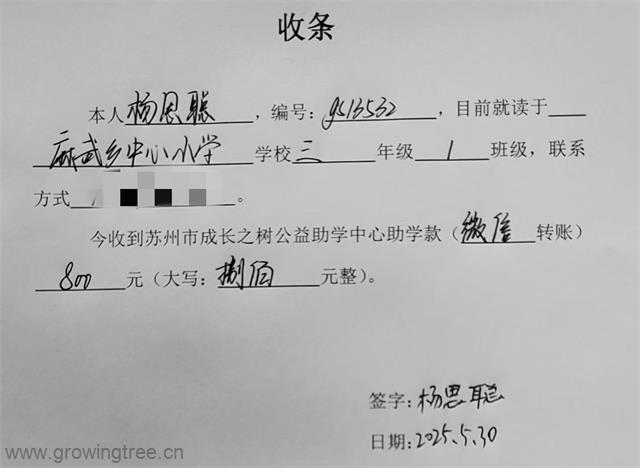 收条
本人杨思聪，编号：gs13532，目前就读于
麻武乡中心小学学校三年级1班级，联系
方式。
今收到苏州市成长之树公益助学中心助学款（微信转账）
800元（大写：捌佰元整）。
签字：杨思聪
日期：2025.5.30
www.growingtree.cn